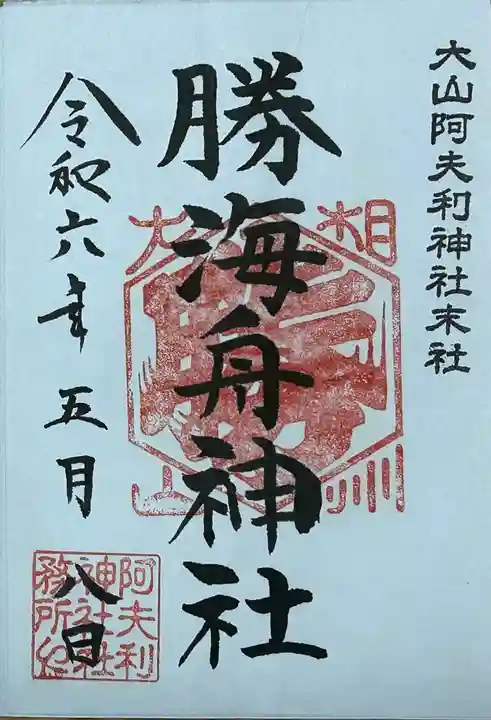 大山阿夫利神社末社
相州
大山
勝海舟神社
令和六年五月
八日
阿夫利
神社社
務所之